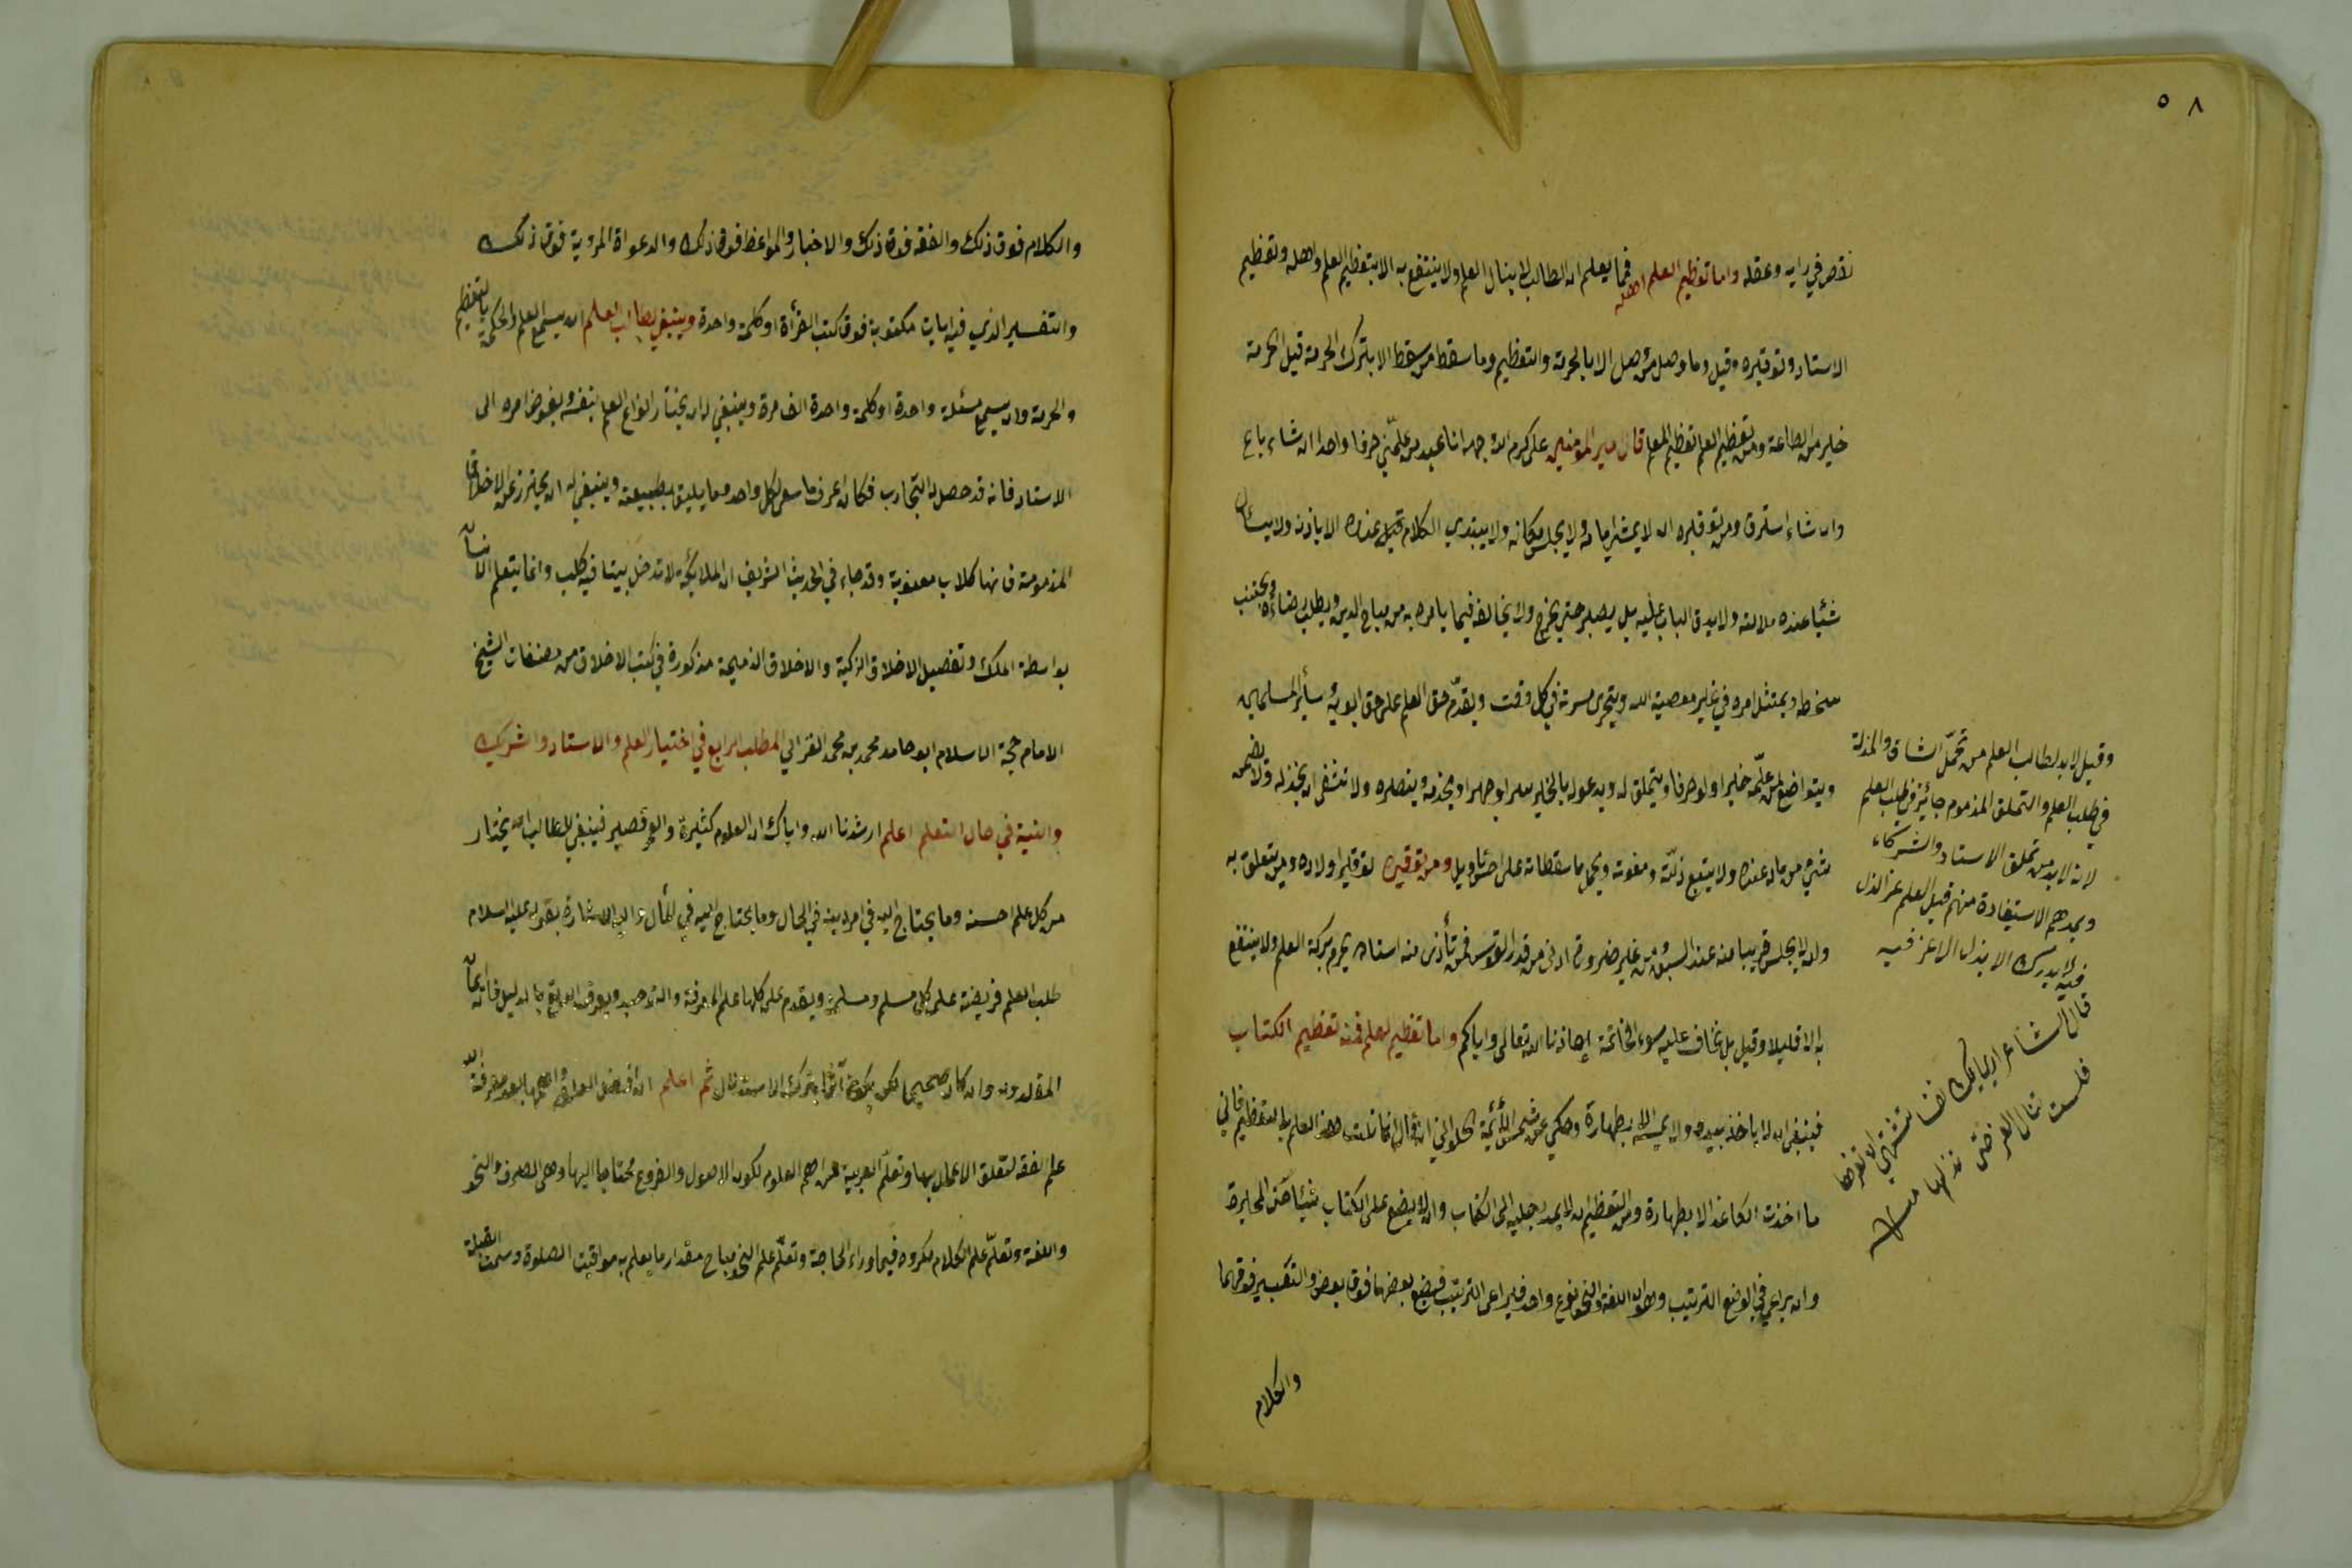 ٥٨
نقص في رايه وعقله واما تعظيم العلم واهله فمما يعلم ان الطالب لا ينال العلم ولا ينتفع به الا بتعظيم العلم واهله وتعظيم
الاستاد وتوقيره وقيل وما وصل من وصل الا بالحرمة والتعظيم وما سقط من سقط الا بترك الحرمة قيل الحرمة
خير من الطاعة ومن تعظيم العلم تعظيم المعلم قال امير المؤمنين على كرم الله وجهه انا عبد من علمني حرفا واحدا ان شاء باع
وان شاء استرق ومن توقيره ان لا يمشي امامه ولا يجلس مكانه ولا يبتدي الكلام قبل عنده الا باذنه ولا يسأل
شئيا عند ملالته ولا يدق الباب عليه بل يصبر حتي يخرج ولا يخالفه فيما يامره به من مباح الدين ويطلب رضاءه ويجتنب
سخطه ويمتثل امره في غير معصية الله ويتحرى مسرته في كل وقت ويقدم حق المعلم على حق ابويه وسائر المسلمين
ويتواضع لمن علمه خيرا ولو حرفا ويتملق له ويدعو له بالخير سرا وجهرا ويخدمه وينصره ولا ينبغي ان يخذله ولا يضن
بشيء من مال عنده ولا يتبع زلته وهفوته ويحمل ما سقطاته على احسن تاويل ومن توقيره توقير اولاده ومن يتعلق به
وان لا يجلس قريبا منه عند السبق من غير ضرورة ادنى من قدر القوس فمن تأذى منه استاده يحرم بركة العلم ولا ينتفع
به الا قليلا وقيل بل يخاف عليه سوء الخاتمة اعاذنا الله تعالى واياكم واما تعظيم العلم فمنه تعظيم الكتاب
فينبغي ان لا ياخذ بيده ولا يمسه الا بطهارة وحكي عن شمس الأئمة الحلواني انه قال انما نلت هذا العلم بالتعظيم فاني
ما اخذت الكاغذ الا بطهارة ومن التعظيم ان لا يمد رجليه الى الكتاب وان لا يضع على الكتاب شيئا حتى المحبرة
وان يراعي في الوضع الترتيب وهو ان اللغة والنحو نوع واحد فيراعى الترتيب فيضع بعضها فوق بعض والتعبير فوقهما
والكلام
وقيل لابد لطالب العلم من تحمل المشاق والمذلة
في طلب العلم والتملق المذموم جائز في طلب العلم
لانه لابد من تملق الاستاد والشركاء
الاستفادة منهم قيل العلم عز لا ذل
فيه لا يدرك الا بذل لا عز فيه
قال الشاعر ارى لك نفسا تشتهي ان تعزها
فلست تنال العز حتى تذلها
والكلام فوق ذلك والفقه فوق ذلك والاخبار والمواعظ فوق ذلك والدعوات المروية فوق ذلك
والتفسير الذي فيه ايات مكتوبة فوق كتب القرأة او كلمة واحدة وينبغي لطالب العلم ان يسمع العلم والحكمة بالتعظيم
والحرمة وان يسمع مسئلة واحدة او كلمة واحدة الف مرة وينبغي له ان لا يختار انواع العلم بنفسه ويفوض امره الى
الاستاد فانه قد حصل له التجارب فكان اعرف ما سوى لكل واحد وما يليق بطبيعته وينبغي له ان يحترز عن الاخلاق
المذمومة فانها كلاب معنوية وقد جاء في الحديث الشريف ان الملائكة لا تدخل بيتا فيه كلب وانما يتعلم الانسان
بواسطة الملك وتفصيل الاخلاق الزكية والاخلاق الذميمة مذكورة في كتب الاخلاق من مصنفات الشيخ
الامام حجة الاسلام ابو حامد محمد بن محمد الغزالي المطلب الرابع في اختيار العلم والاستاد والشريك
والنية في حال التعلم اعلم ارشدنا الله واياك ان العلوم كثيرة والعمر قصير فينبغي للطالب ان يختار
من كل علم احسنه وما يحتاج اليه في امر دينه في الحال وما يحتاج اليه في المأل واليه الاشارة بقوله عليه السلام
طلب العلم فريضة على كل مسلم ومسلمة ويقدم على كلها علم المعرفة والتوحيد ويعرف الله تع بالدليل فان ايمان
المقلد وان كان صحيحا لكن يكون آثما بترك الاستدلال ثم اعلم ان افضل العلوم واهمها بعد معرفة الله
علم الفقه لتعلق الاعمال بها وتعلم العربية من اهم العلوم لكون الاصول والفروع محتاجا اليها وهى الصرف والنحو
واللغة وتعلم علم الكلام مكروه فيما وراء الحاجة وتعلم علم النجوم مباح مقدار ما يعلم به مواقيت الصلوة وسمت القبلة